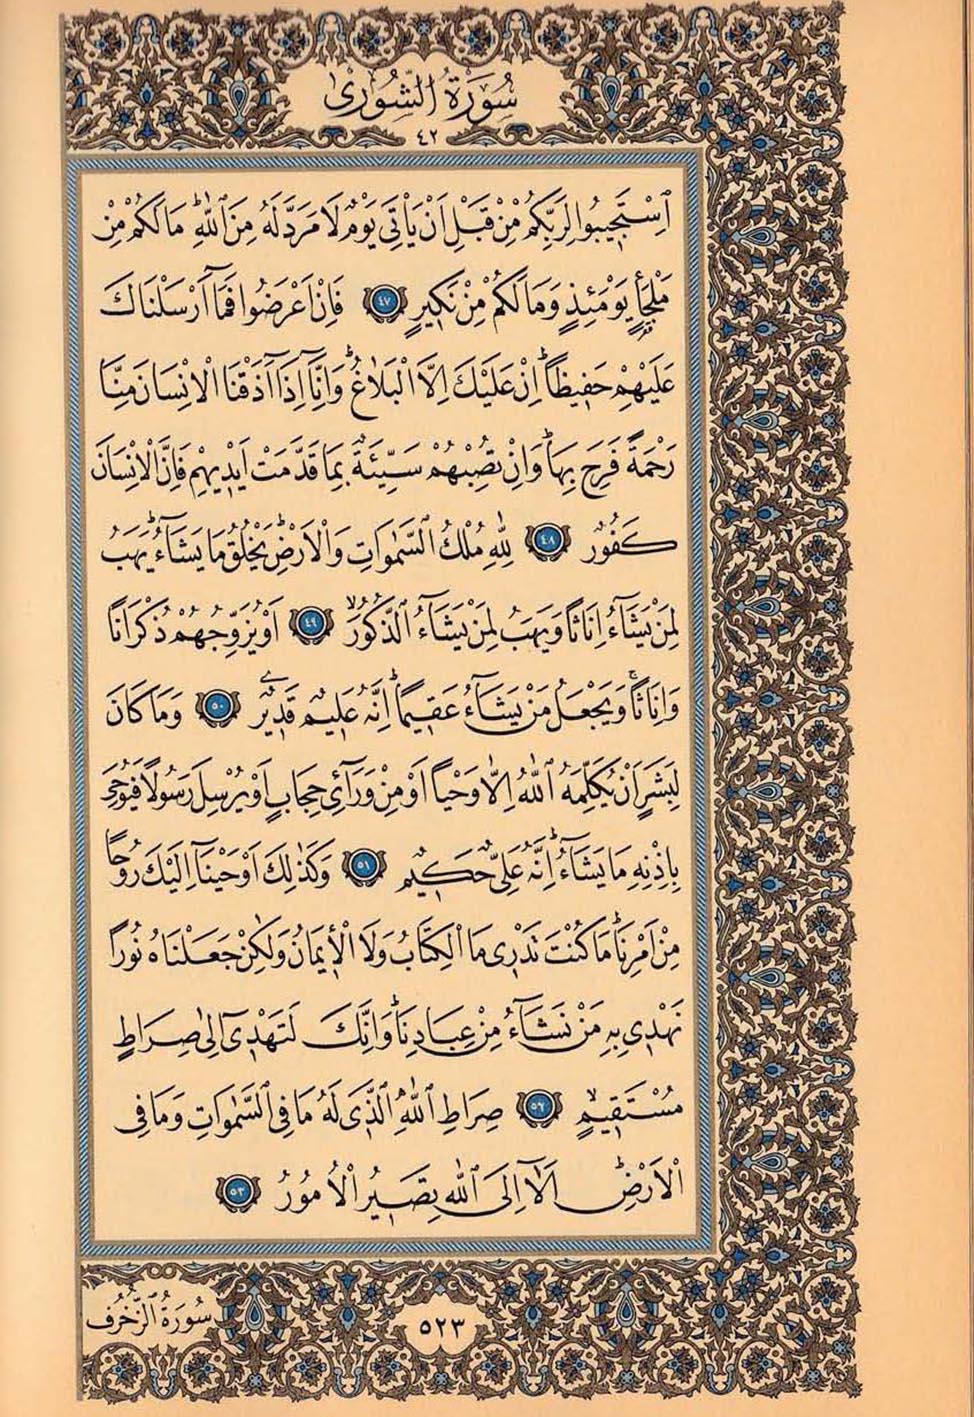 سُورَةُ الشُّورٰى
٤٢
اِسْتَجٖيبُوا لِرَبِّكُمْ مِنْ قَبْلِ اَنْ يَأْتِيَ يَوْمٌ لَا مَرَدَّ لَهُ مِنَ اللّٰهِۜ مَا لَكُمْ مِنْ
مَلْجَأٍ يَوْمَئِذٍ وَمَا لَكُمْ مِنْ نَكٖيرٍ ﴿٤٧﴾ فَاِنْ اَعْرَضُوا فَمَٓا اَرْسَلْنَاكَ
عَلَيْهِمْ حَفٖيظًاۜ اِنْ عَلَيْكَ اِلَّا الْبَلَاغُۜ وَاِنَّٓا اِذَٓا اَذَقْنَا الْاِنْسَانَ مِنَّا
رَحْمَةً فَرِحَ بِهَاۚ وَاِنْ تُصِبْهُمْ سَيِّئَةٌ بِمَا قَدَّمَتْ اَيْدٖيهِمْ فَاِنَّ الْاِنْسَانَ
كَفُورٌ ﴿٤٨﴾ لِلّٰهِ مُلْكُ السَّمٰوَاتِ وَالْاَرْضِۜ يَخْلُقُ مَا يَشَٓاءُۜ يَهَبُ
لِمَنْ يَشَٓاءُ اِنَاثًا وَيَهَبُ لِمَنْ يَشَٓاءُ الذُّكُورَۙ ﴿٤٩﴾ اَوْ يُزَوِّجُهُمْ ذُكْرَانًا
وَاِنَاثًاۚ وَيَجْعَلُ مَنْ يَشَٓاءُ عَقٖيمًاۜ اِنَّهُ عَلٖيمٌ قَدٖيرٌ ﴿٥٠﴾ وَمَا كَانَ
لِبَشَرٍ اَنْ يُكَلِّمَهُ اللّٰهُ اِلَّا وَحْيًا اَوْ مِنْ وَرَٓائِ حِجَابٍ اَوْ يُرْسِلَ رَسُولًا فَيُوحِيَ
بِاِذْنِهٖ مَا يَشَٓاءُۜ اِنَّهُ عَلِيٌّ حَكٖيمٌ ﴿٥١﴾ وَكَذٰلِكَ اَوْحَيْنَٓا اِلَيْكَ رُوحًا
مِنْ اَمْرِنَاۜ مَا كُنْتَ تَدْرٖي مَا الْكِتَابُ وَلَا الْاٖيمَانُ وَلٰكِنْ جَعَلْنَاهُ نُورًا
نَهْدٖي بِهٖ مَنْ نَشَٓاءُ مِنْ عِبَادِنَاۜ وَاِنَّكَ لَتَهْدٖٓي اِلٰى صِرَاطٍ
مُسْتَقٖيمٍۙ ﴿٥٢﴾ صِرَاطِ اللّٰهِ الَّذٖي لَهُ مَا فِي السَّمٰوَاتِ وَمَا فِي
الْاَرْضِۜ اَلَٓا اِلَى اللّٰهِ تَصٖيرُ الْاُمُورُ ﴿٥٣﴾
سُورَةُ الزُّخْرُفِ
٥٢٣